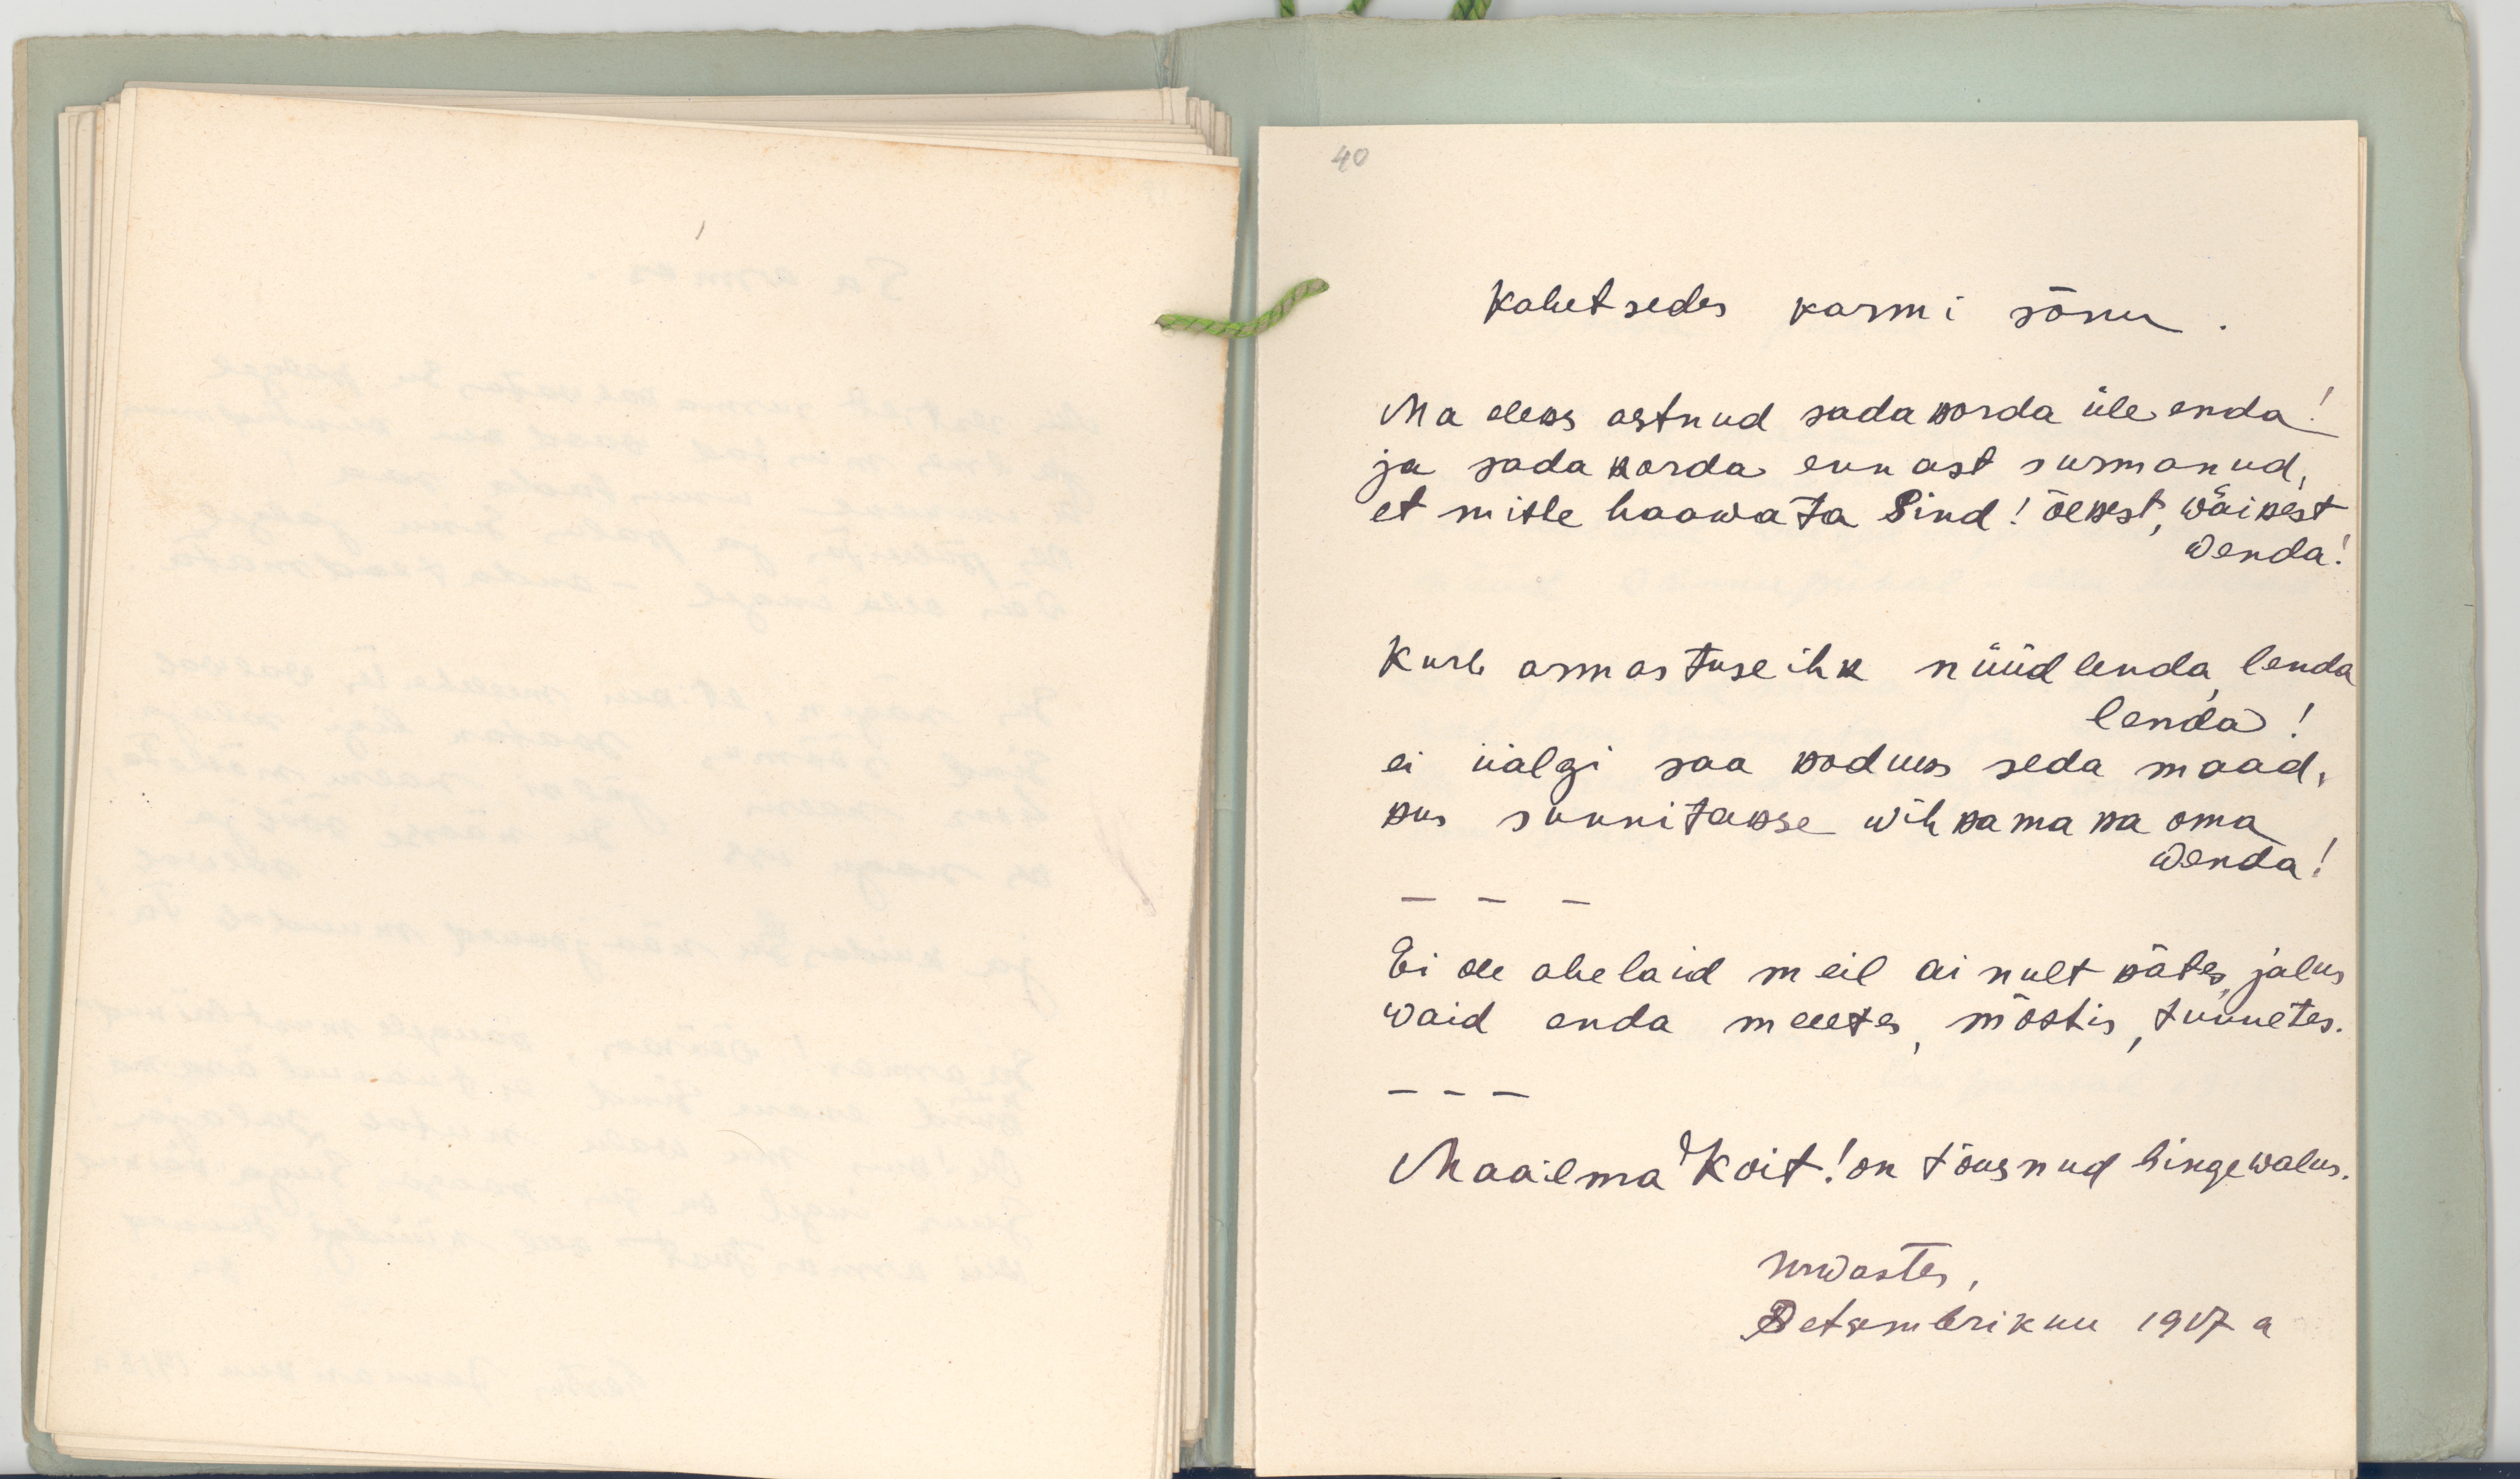 40
Kahetsedes karmi sõnu.
Ma oleks astnud sada korda üle enda!
ja sada korda ennast surmanud,
et mitte haawata Sind! õekest, wäikest
wenda!
Kurb armastuse ihk nüüd lenda, lenda
lenda!
ei iialgi saa koduks seda maad,
kus sunnitakse wihkama ka oma
wenda!
– – –
Ei ole ahelaid meil ainult kätes, jalus
waid enda meeltes, mõttis, tunnetes.
– – –
Maailma Koit! on tõusnud hingewalus.
Urwastes,
Detsembrikuu 1917 a